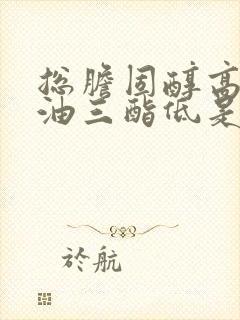 总胆固醇高
油三酯低是
於航